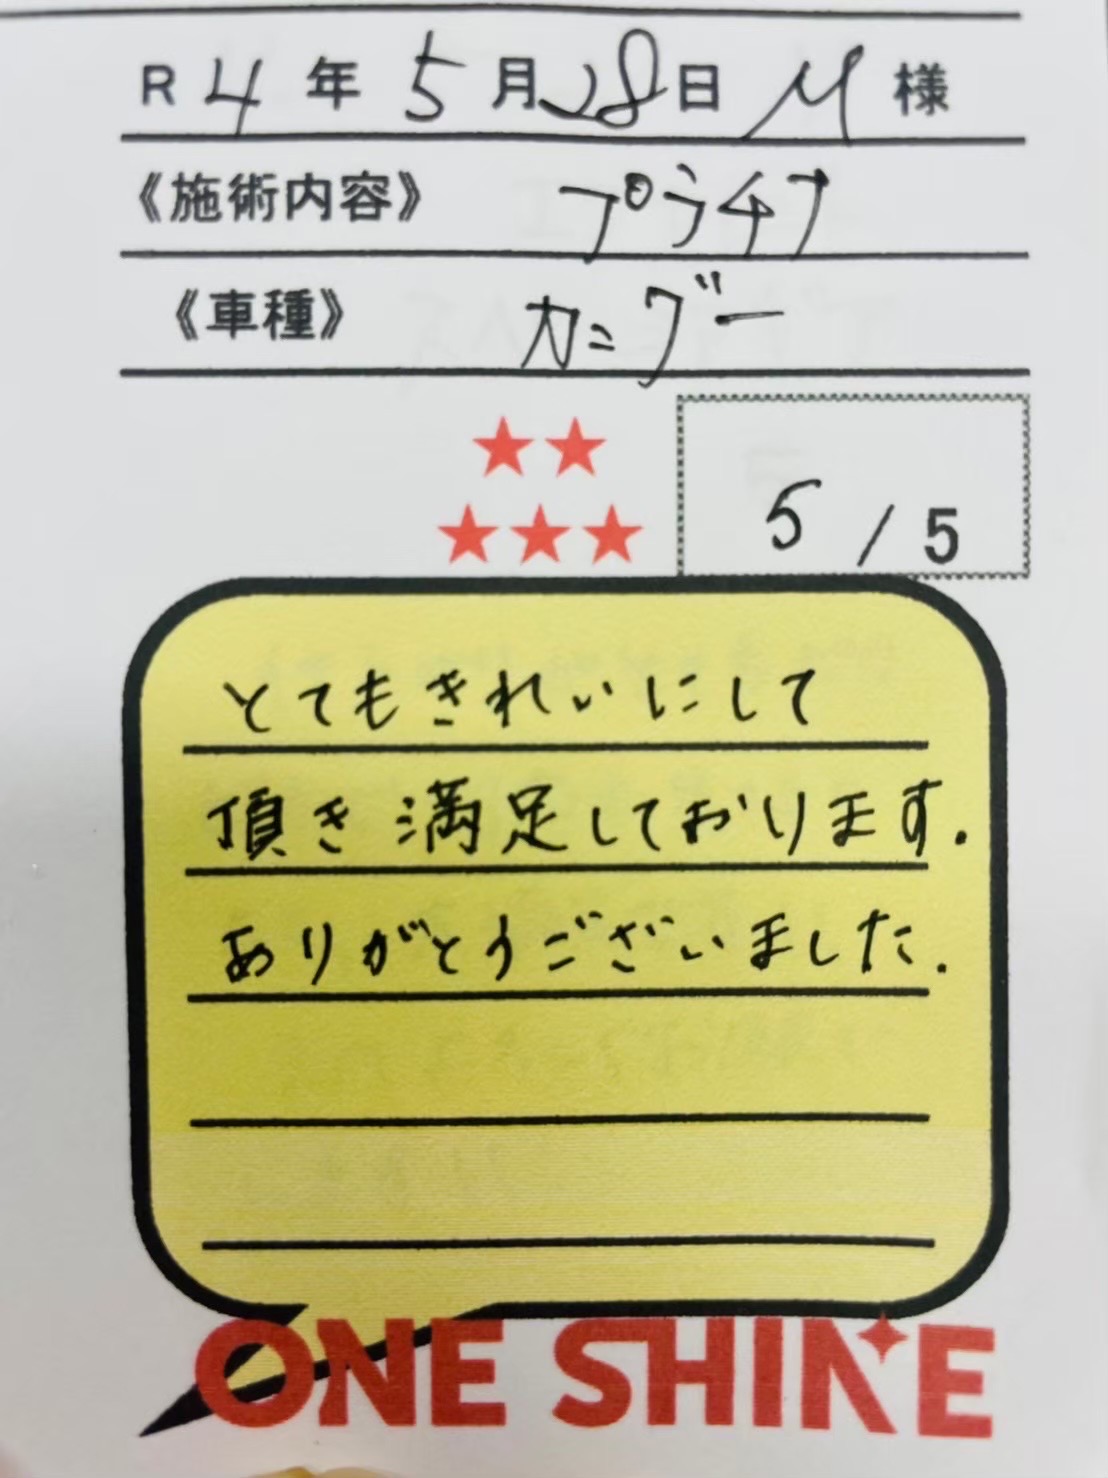 R 4 年 5 月 28 日 M 様
《施術内容》 プラチナ
《車種》 カングー
★★
★★★
5 / 5
とてもきれいにして
頂き満足しております.
ありがとうございました.
ONE SHINE